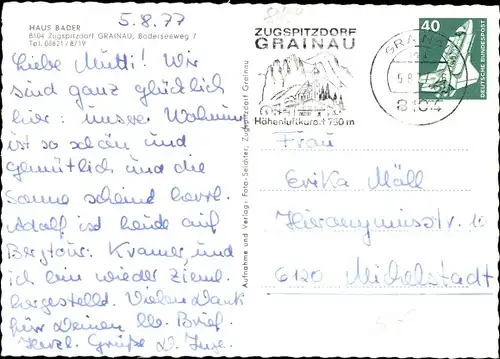 5.8.77
HAUS BADER
8104 Zugspitzdorf GRAINAU, Baderseeweg 7
Tel. 08821/8719
Liebe Mutti! Wir
sind ganz glücklich
hier: unsere Wohnung
ist so schön und
gemütlich und die
Sonne scheint herrl.
Adolf ist heute auf
Bergtour. Kramer, und
ich bin wieder zieml.
hergestellt. Vielen Dank
für Deinen lb. Brief.
Herzl. Grüße D. Inge.
Aufnahme und Verlag: Foto-Seidater, Zugspitzdorf Grainau
ZUGSPITZDORF
GRAINAU
Höhenluftkurort 750 m
GRAINAU
5.8.
8104
40
DEUTSCHE BUNDESPOST
Frau
Erika Mäll
Hieronymusstr. 10
6120 Michelstadt